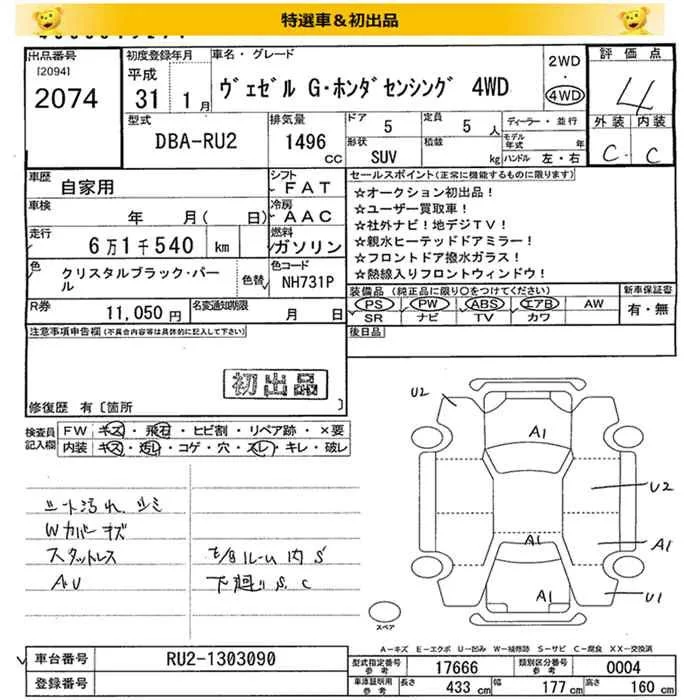 特選車＆初出品
出品番号
[2094]
2074
初度登録年月
平成
31 1月
車名・グレード
ヴェゼル G・ホンダセンシング 4WD
2WD
・
4WD
評価点
4
外装 内装
C C
型式
DBA-RU2
排気量
1496
cc
ドア
5
定員
5 人
形状
SUV
積載
kg
ディーラー・並行
モデル年式 年
ハンドル 左・右
車歴
自家用
シフト
FAT
車検
年 月( 日)
冷房
AAC
走行
6万1千540 km
燃料
ガソリン
色
クリスタルブラック・パール
色替
色コード
NH731P
R券
11,050 円
名変通知期限
月 日
セールスポイント(正常に機能するものに限ります)
☆オークション初出品！
☆ユーザー買取車！
☆社外ナビ！地デジTV！
☆親水ヒーテッドドアミラー！
☆フロントドア撥水ガラス！
☆熱線入りフロントウィンドウ！
装備品(純正品に限り○をつけてください)
PS PW ABS エアB AW
SR ナビ TV カワ
新車保証書
有・無
注意事項申告欄(不具合内容等は具体的に記入して下さい)
後日品
初出品
修復歴 有〔箇所 〕
検査員記入欄
FW キズ・飛石・ヒビ割・リペア跡・×要
内装 キズ・汚れ・コゲ・穴・スレ・キレ・破レ
シート汚れ シミ
Wカバーキズ
スタットレス
AU
ルーム内S
下廻りS、C
U2
A1
U2
A1
A1
A1
U1
スペア
A－キズ E－エクボ U－凹み W－補修跡 S－サビ C－腐食 XX－交換済
車台番号
RU2-1303090
登録番号
型式指定番号
参考
17666
類別区分番号
参考
0004
車庫証明用
参考
長さ 433 cm 幅 177 cm 高さ 160 cm